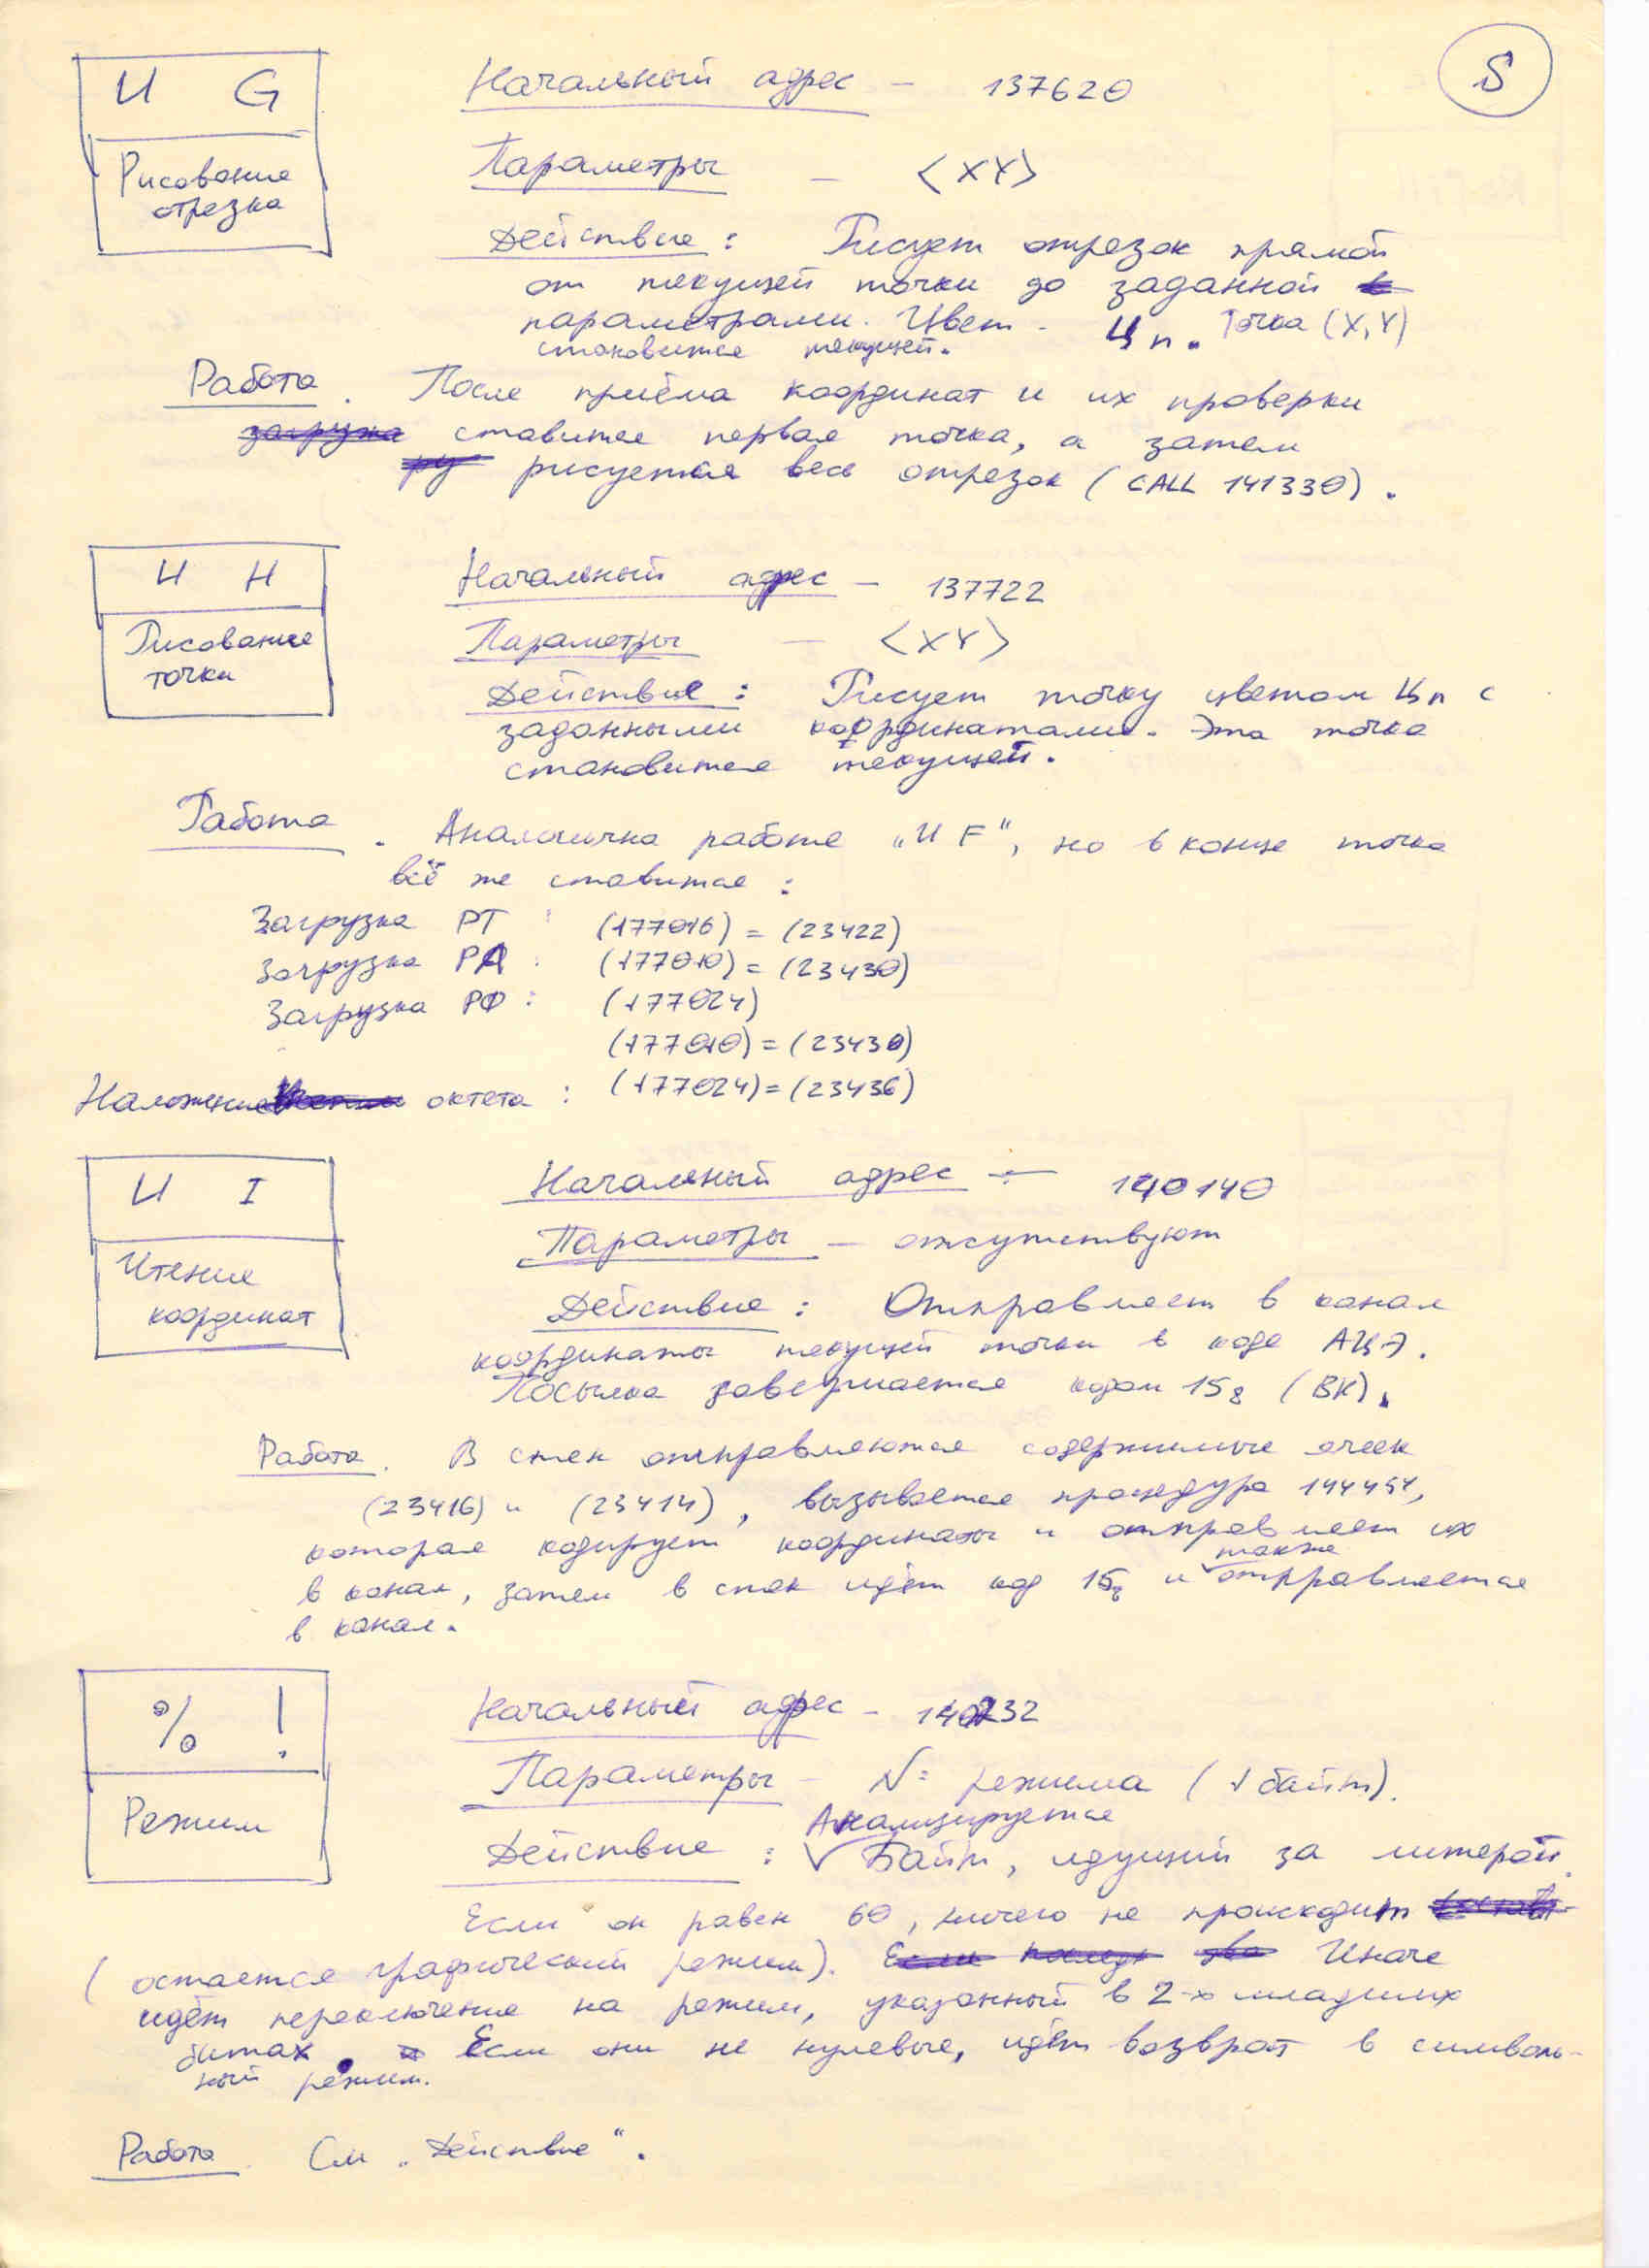 5
U G
Рисование
отрезка
Начальный адрес – 137620
Параметры – <XY>
Действие : Рисует отрезок прямой
от текущей точки до заданной
параметрами. Цвет – Цп. Точка (X,Y)
становится текущей.
Работа. После приёма координат и их проверки
загрузка ставится первая точка, а затем
ру рисуется весь отрезок (CALL 141330).
U H
Рисование
точки
Начальный адрес – 137722
Параметры – <XY>
Действие : Рисует точку цветом Цп с
заданными координатами. Эта точка
становится текущей.
Работа. Аналогична работе „U F“, но в конце точка
всё же ставится :
Загрузка РТ : (177016) = (23422)
Загрузка РА : (177010) = (23430)
Загрузка РФ : (177024)
(177010) = (23430)
Наложение октета : (177024) = (23436)
U I
Чтение
координат
Начальный адрес – 140140
Параметры – отсутствуют
Действие : Отправляет в канал
координаты текущей точки в коде АЦЭ.
Посылка завершается кодом 15₈ (ВК).
Работа. В стек отправляются содержимые ячеек
(23416) и (23414), вызывается процедура 144454,
которая кодирует координаты и отправляет их
в канал, затем в стек идёт код 15₈ и также отправляется
в канал.
% !
Режим
Начальный адрес – 140232
Параметры – № режима (1 байт).
Действие : Анализируется Байт, идущий за литерой.
Если он равен 60, ничего не происходит
(остается графический режим). Если Иначе
идёт переключение на режим, указанный в 2-х младших
битах. Если они не нулевые, идёт возврат в символь-
ный режим.
Работа. См „Действие“.